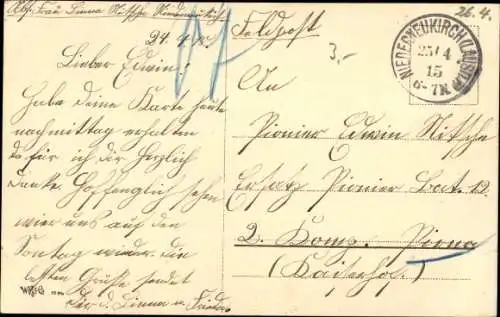 Abs. Frau Linna Nitsche Niederneukirch
26.4.
24.4.15.
Feldpost
3,-
NIEDERNEUKIRCH (LAUSITZ)
25/4
15
6-7N
Lieber Edwin!
Habe deine Karte heute
nachmittag erhalten
da für ich dir herzlich
danke. Hoffenglich sehen
wier uns auf den
Sontag wieder. die
besten Grüße sendet
dir d. Linna u. Frieda
W.&G
An
Pionier Edwin Nitsche
Ersatz Pionier Bat. 12.
2. Komp. Pirna
(Kaiserhof.)